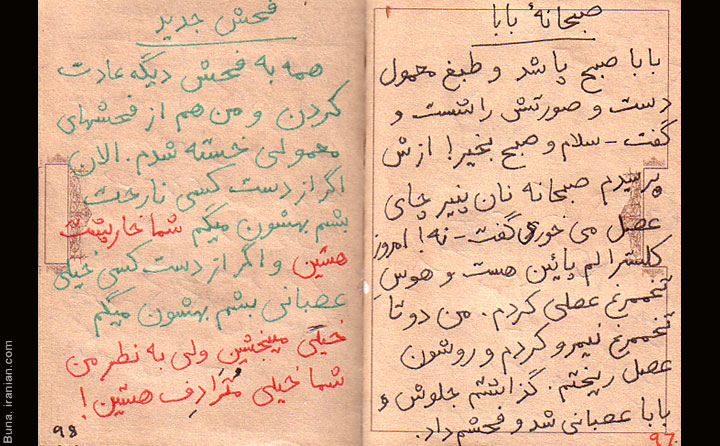 صبحانهٔ بابا
بابا صبح پا شد و طبغ معمول
دست و صورتش را شست و
گفت - سلام و صبح بخیر! ازش
پرسیدم صبحانه نان پنیر چای
عصل می خوری گفت - نه! امروز
کلسترالم پائین هست و هوسِ
تخممرغ عصلی کردم. من دو تا
تخممرغ نیمرو کردم و روشون
عصل ریختم. گذاشتم جلوش و
بابا عصبانی شد و فحشم داد.
۹۷
فحش جدید
همه به فحش دیگه عادت
کردن و من هم از فحشهای
معمولی خسته شدم. الان
اگر از دست کسی ناراحت
بشم بهشون میگم شما خارپشت
هستین و اگر از دست کسی خیلی
عصبانی بشم بهشون میگم
خیلی میبخشین ولی به نظر من
شما خیلی مُتَرادِف هستین!
۹۸
Buna, iranian.com